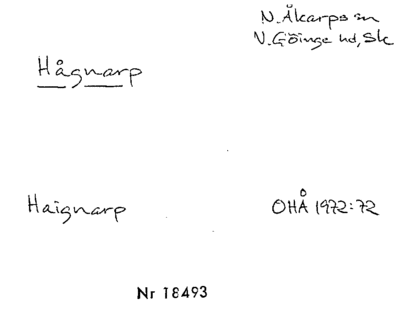 N. Åkarps sn
V. Göinge hd, Sk
Hågnarp
Haignarp
OHÅ 1972:72
Nr 18493